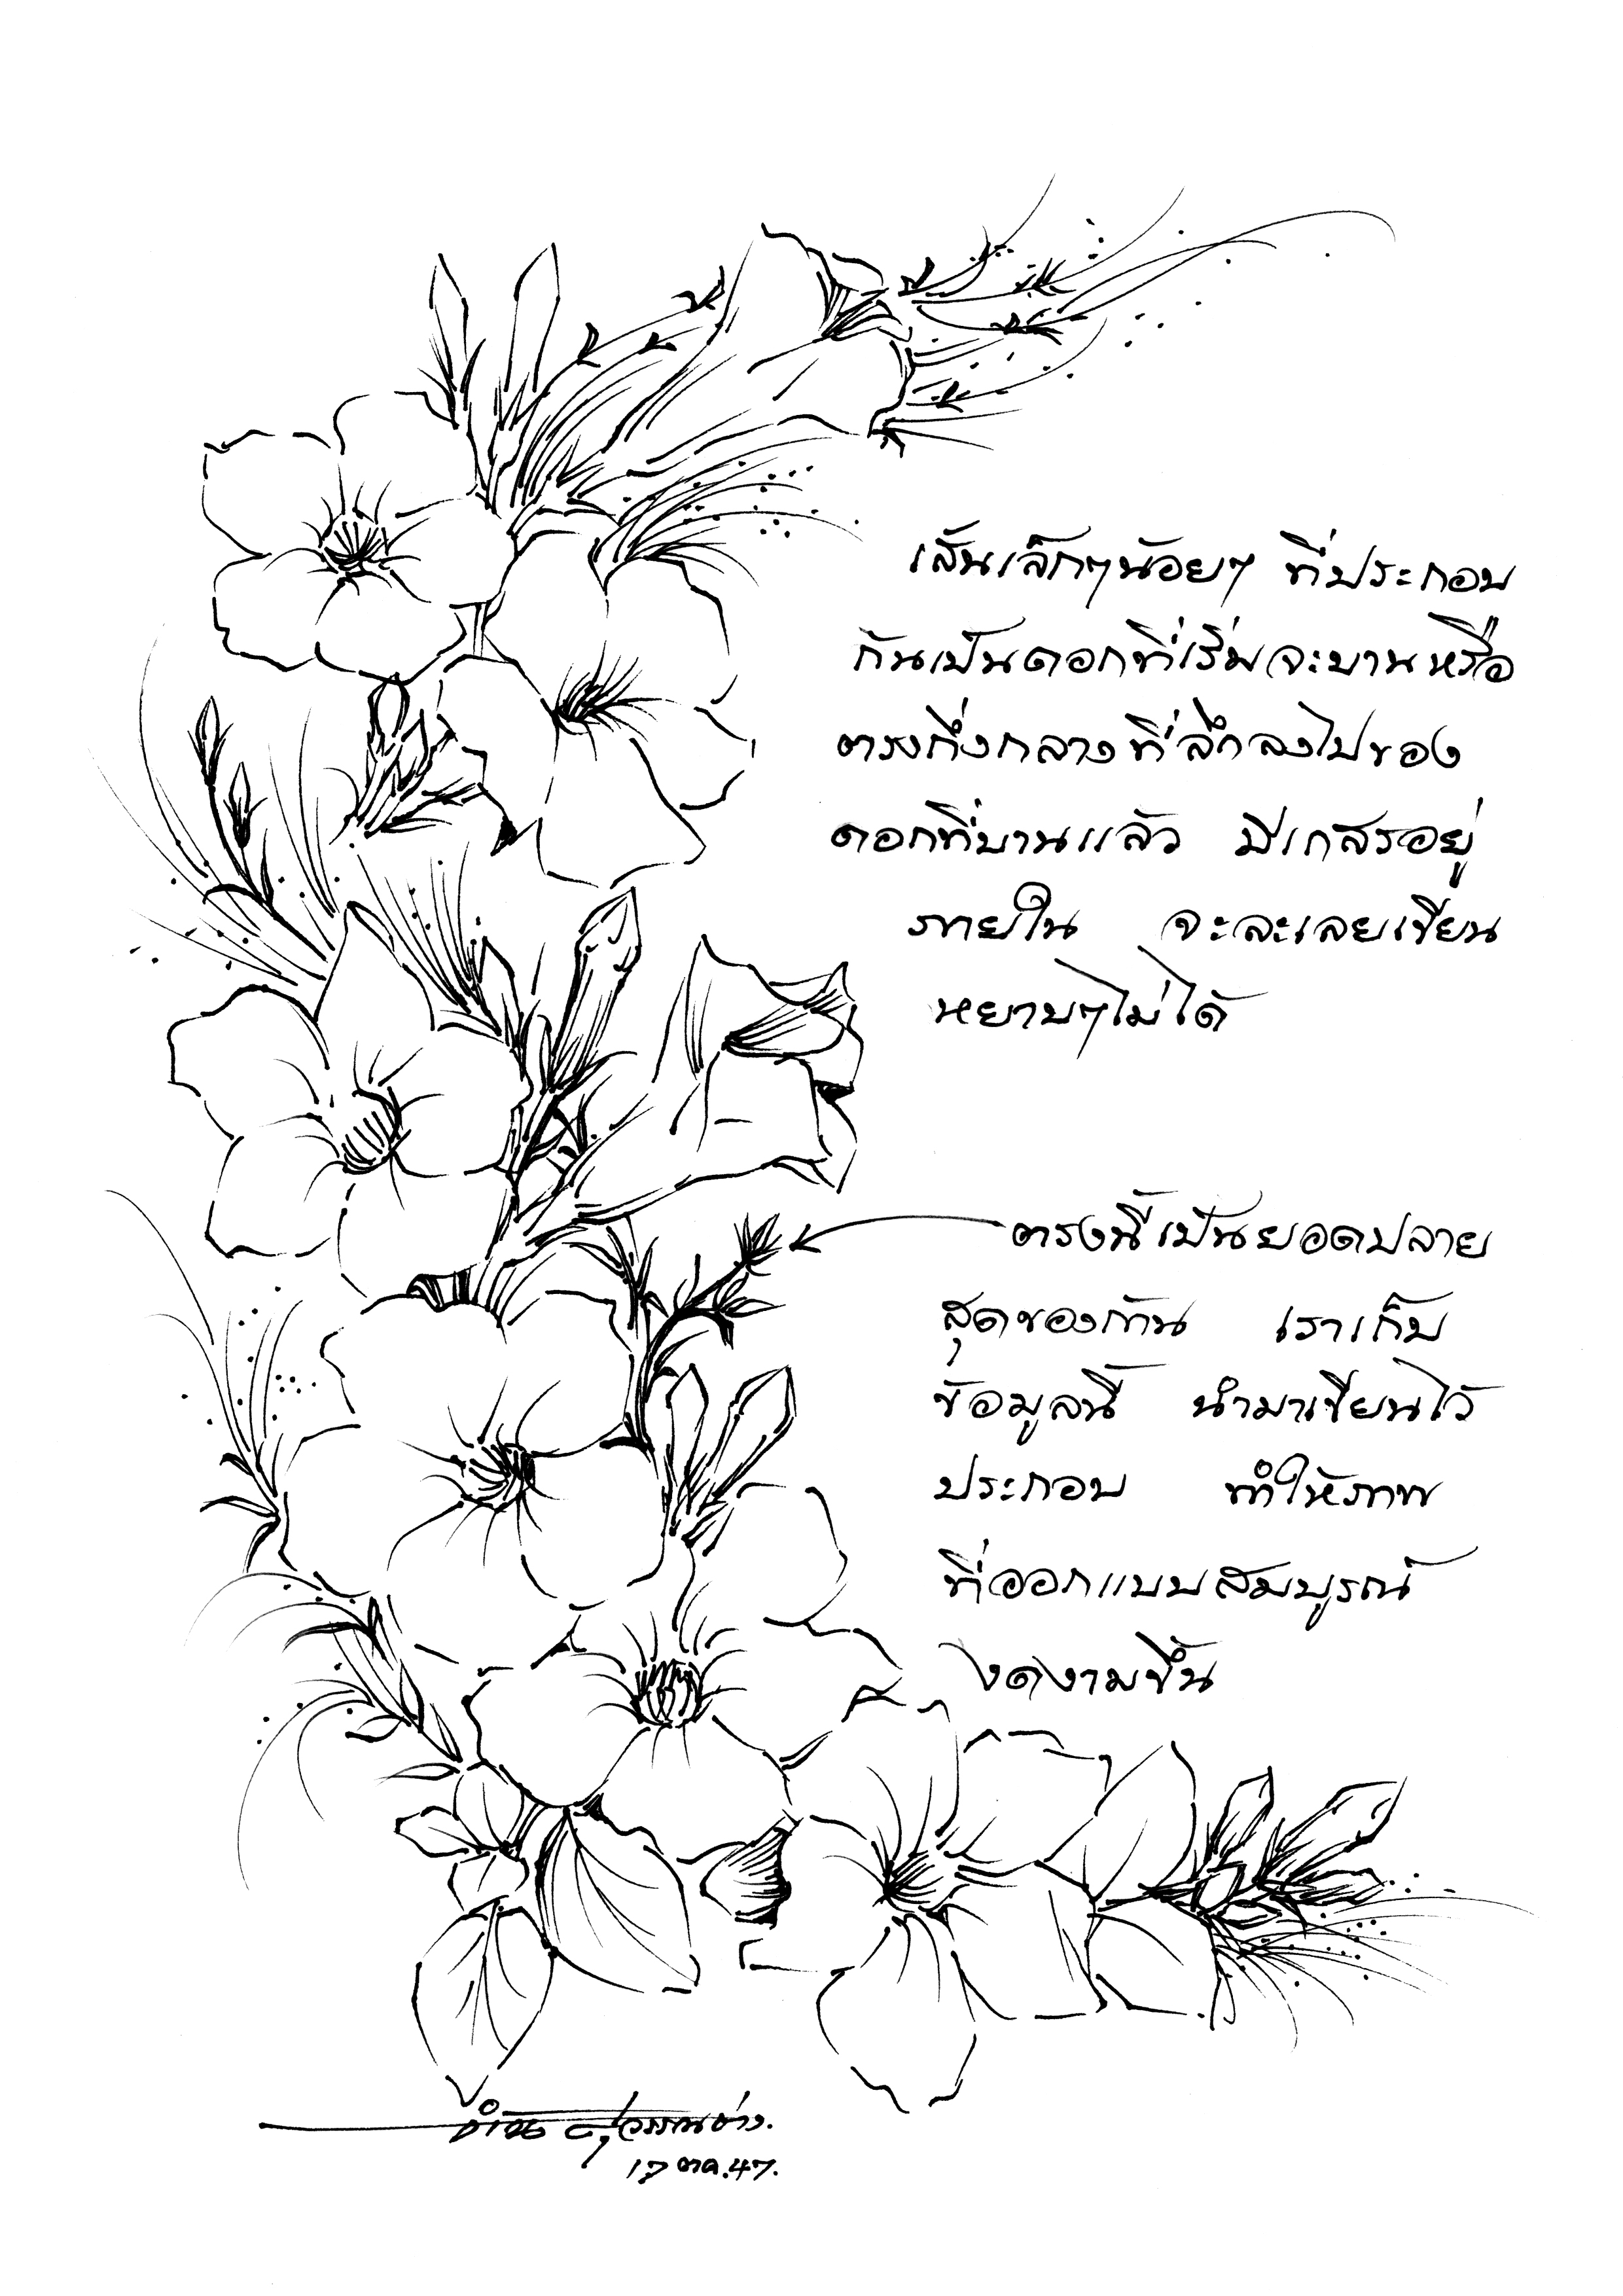 เส้นเล็กๆน้อยๆ ที่ประกอบ
กันเป็นดอกที่เริ่มจะบานหรือ
ตรงกึ่งกลางที่ลึกลงไปของ
ดอกที่บานแล้ว มีเกสรอยู่
ภายใน จะละเลยเขียน
หยาบๆไม่ได้
ตรงนี้เป็นยอดปลาย
สุดของก้าน เราเก็บ
ข้อมูลนี้ นำมาเขียนไว้
ประกอบ ทำให้ภาพ
ที่ออกแบบสมบูรณ์
งดงามขึ้น
สุวรรณช่าง.
17 ตค.47.